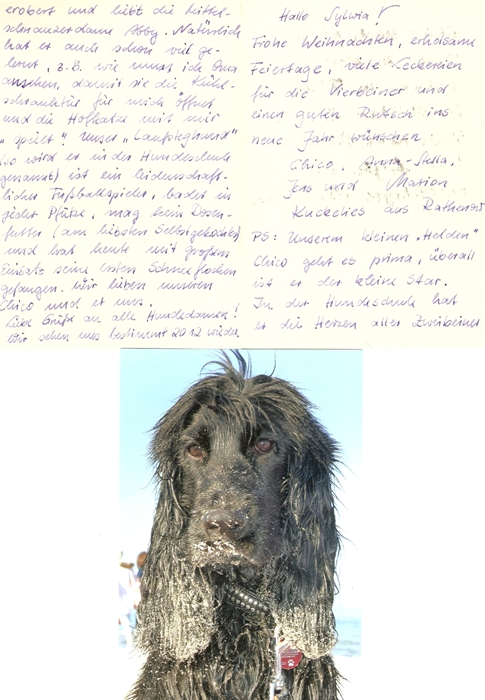 Hallo Sylwia!
Frohe Weihnachten, erholsame
Feiertage, viele Leckereien
für die Vierbeiner und
einen guten Rutsch ins
neue Jahr wünschen
Chico, Anna-Stella,
Jens und Marion
aus Rathenow
PS: Unserem kleinen "Helden"
Chico geht es prima, überall
ist er der kleine Star.
In der Hundeschule hat
er die Herzen aller Zweibeiner
erobert und liebt die Mittel-
schnauzerdame Abby. Natürlich
hat er auch schon viel ge-
lernt, z.B. wie muss ich Oma
ansehen, damit sie die Kühl-
schranktür für mich öffnet
und die Hofkatze mit mir
"spielt". Unser "Laufsteghund"
(so wird er in der Hundeschule
genannt) ist ein leidenschaft-
licher Fußballspieler, badet in
jeder Pfütze, mag kein Dosen-
futter (am liebsten Selbstgekochtes)
und hat heute mit großem
Einsatz seine ersten Schneeflocken
gefangen. Wir lieben unseren
Chico und er uns.
Liebe Grüße an alle Hundedamen!
Wir sehen uns bestimmt 2012 wieder.